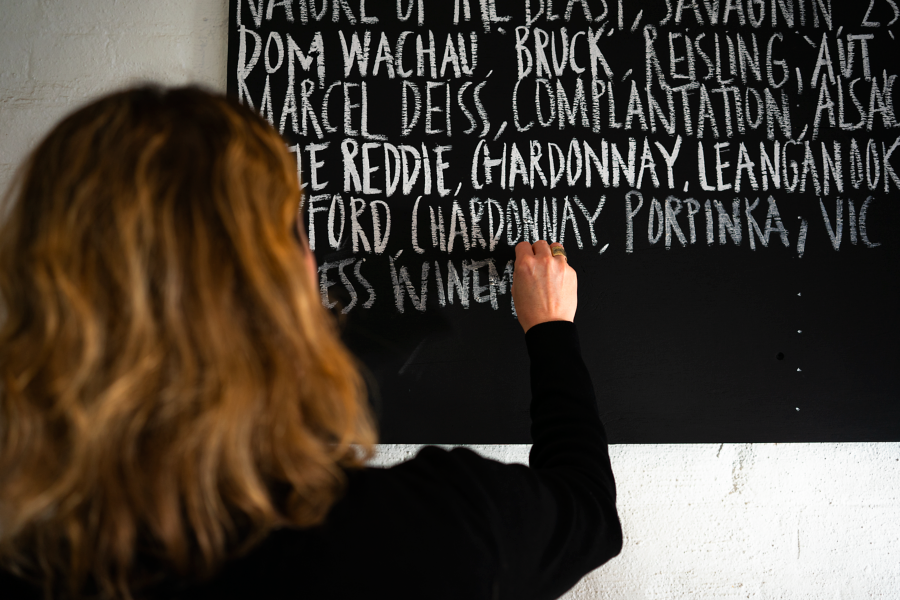 NATURE OF THE BEAST, SAVAGNIN 23
DOM WACHAU, BRUCK, REISLING, 'AUT'
MARCEL DEISS, COMPLANTATION, ALSAC
REDDIE, CHARDONNAY, LEANGANOOK
FORD CHARDONNAY, PORPINKA, VIC
ESS WINEM